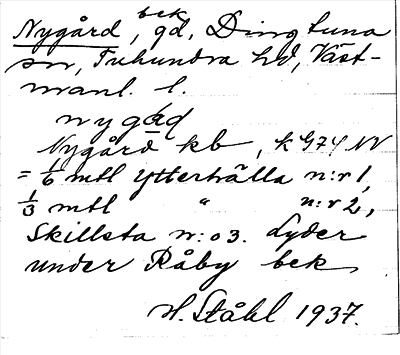 bek
Nygård, gd, Dingtuna
sn, Tuhundra hd, Väst-
manl. l.
nygåd
Nygård kb, k G74 NV
= 1/6 mtl Ytterhälla n:r 1,
1/3 mtl " n:r 2,
Skillsta n:o 3. Lyder
under Råby bek
H. Ståhl 1937.